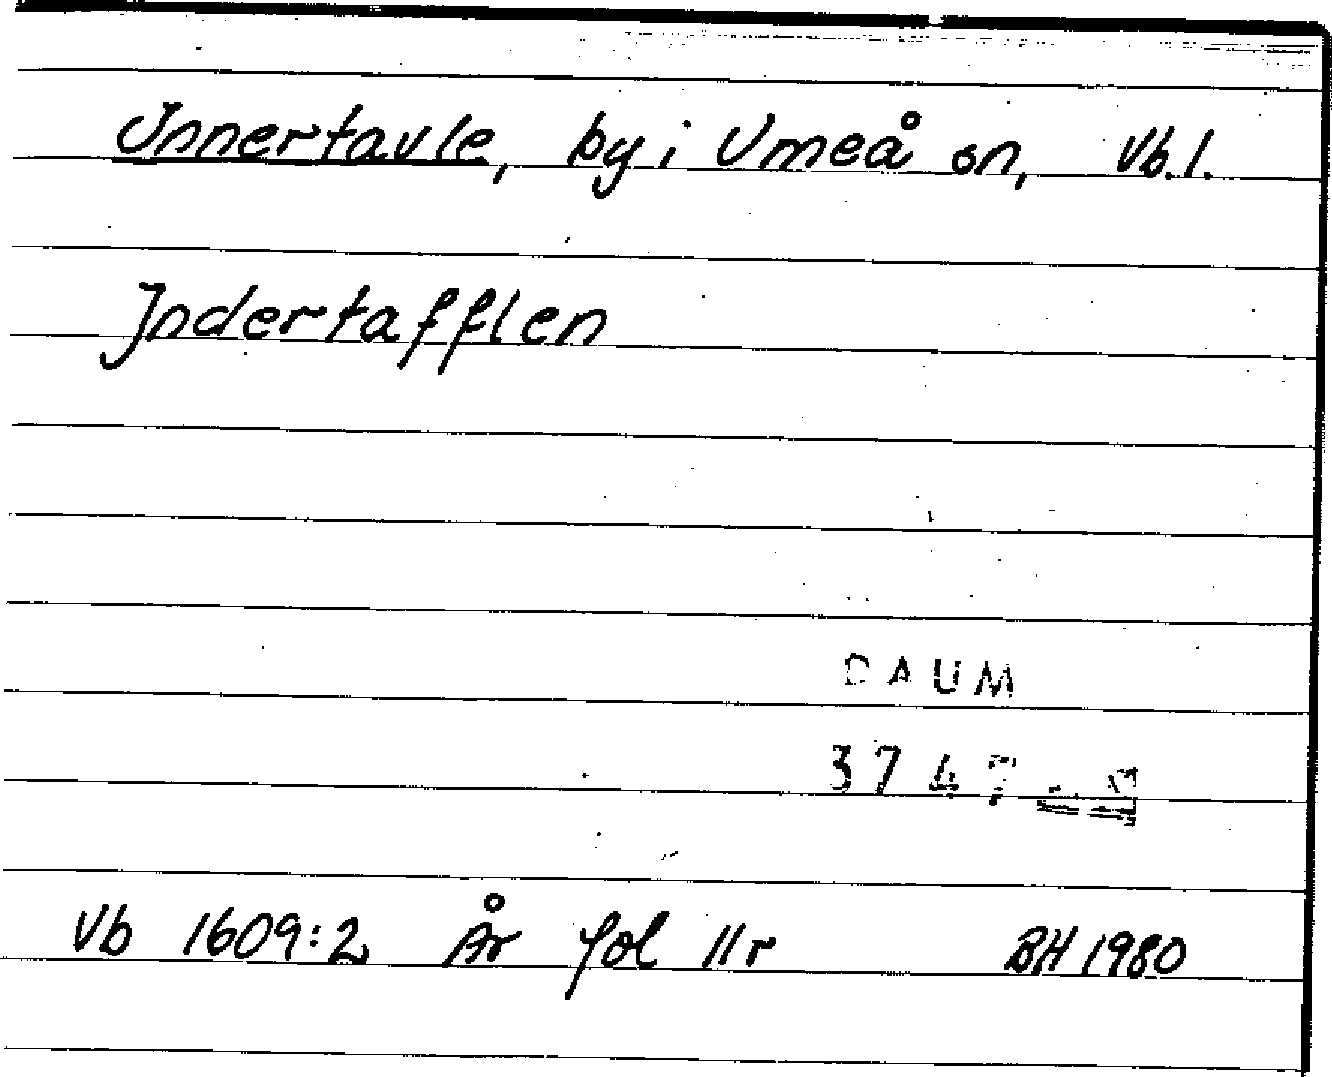 Innertavle, by i Umeå sn, Vb. l.
Jndertafflen
DAUM
3747
Vb 1609:2 År fol 11r BH 1980